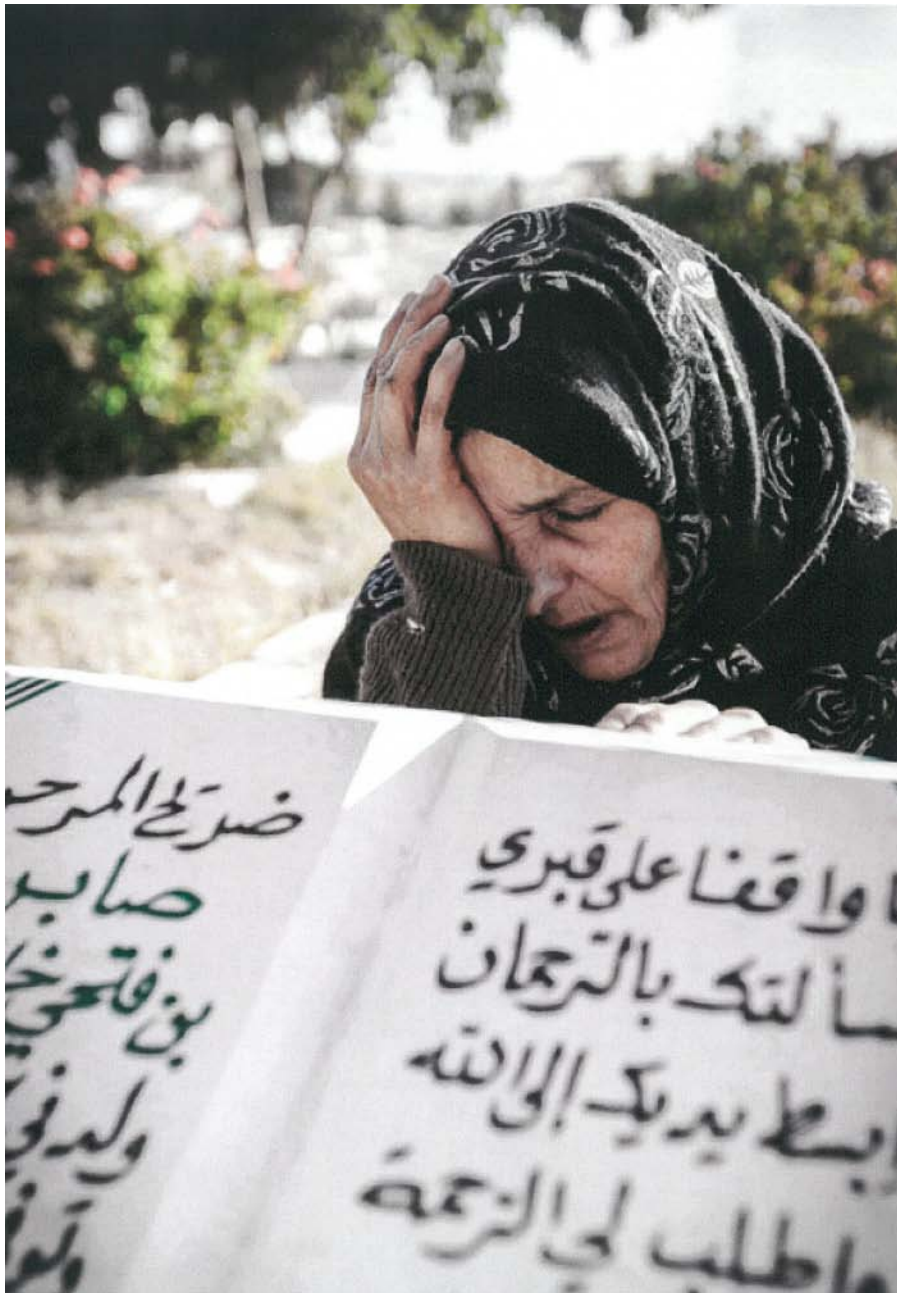 ا واقفا على قبري
سألتك بالرّحمان
ابسط يديك إلى الله
واطلب لي الرّحمة
ضريح المرحـ
صابر
بن فتحي
ولد في